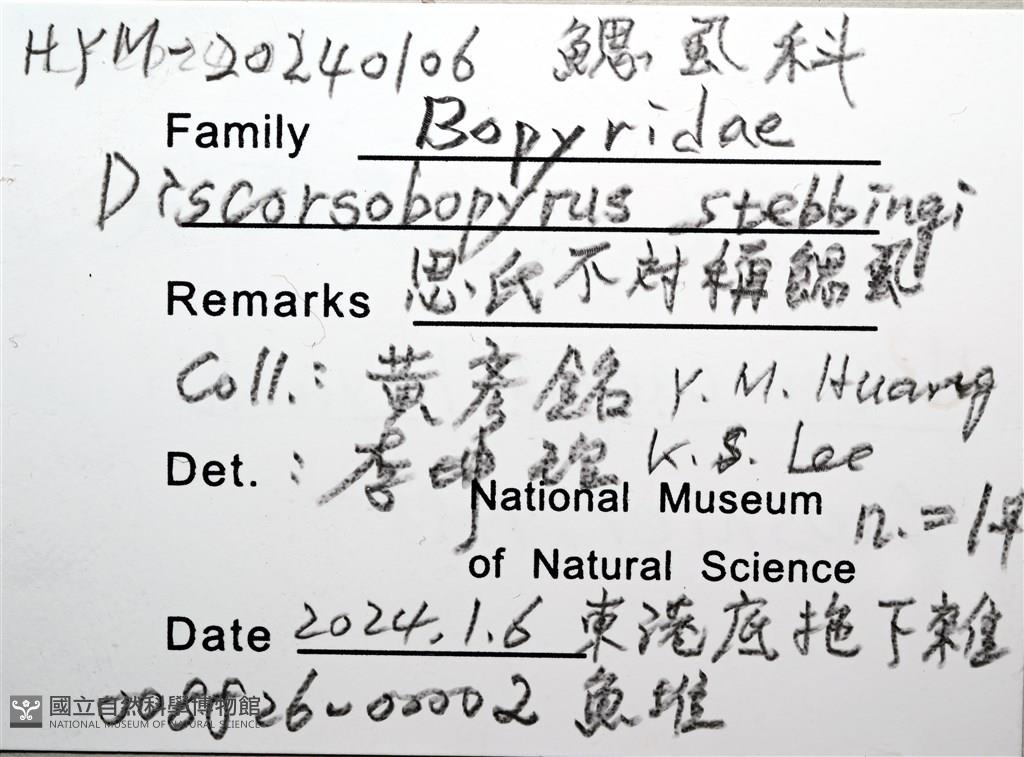 HYM-20240106 鰓虱科
Family Bopyridae
Discorsobopyrus stebbingi
Remarks 思氏不対稱鰓虱
Coll.: 黃彥銘 Y. M. Huang
Det. : 李坤瑄 K. S. Lee
National Museum n.=14
of Natural Science
Date 2024.1.6 東港底拖下雜
26-00002 魚堆
國立自然科學博物館
NATIONAL MUSEUM OF NATURAL SCIENCE